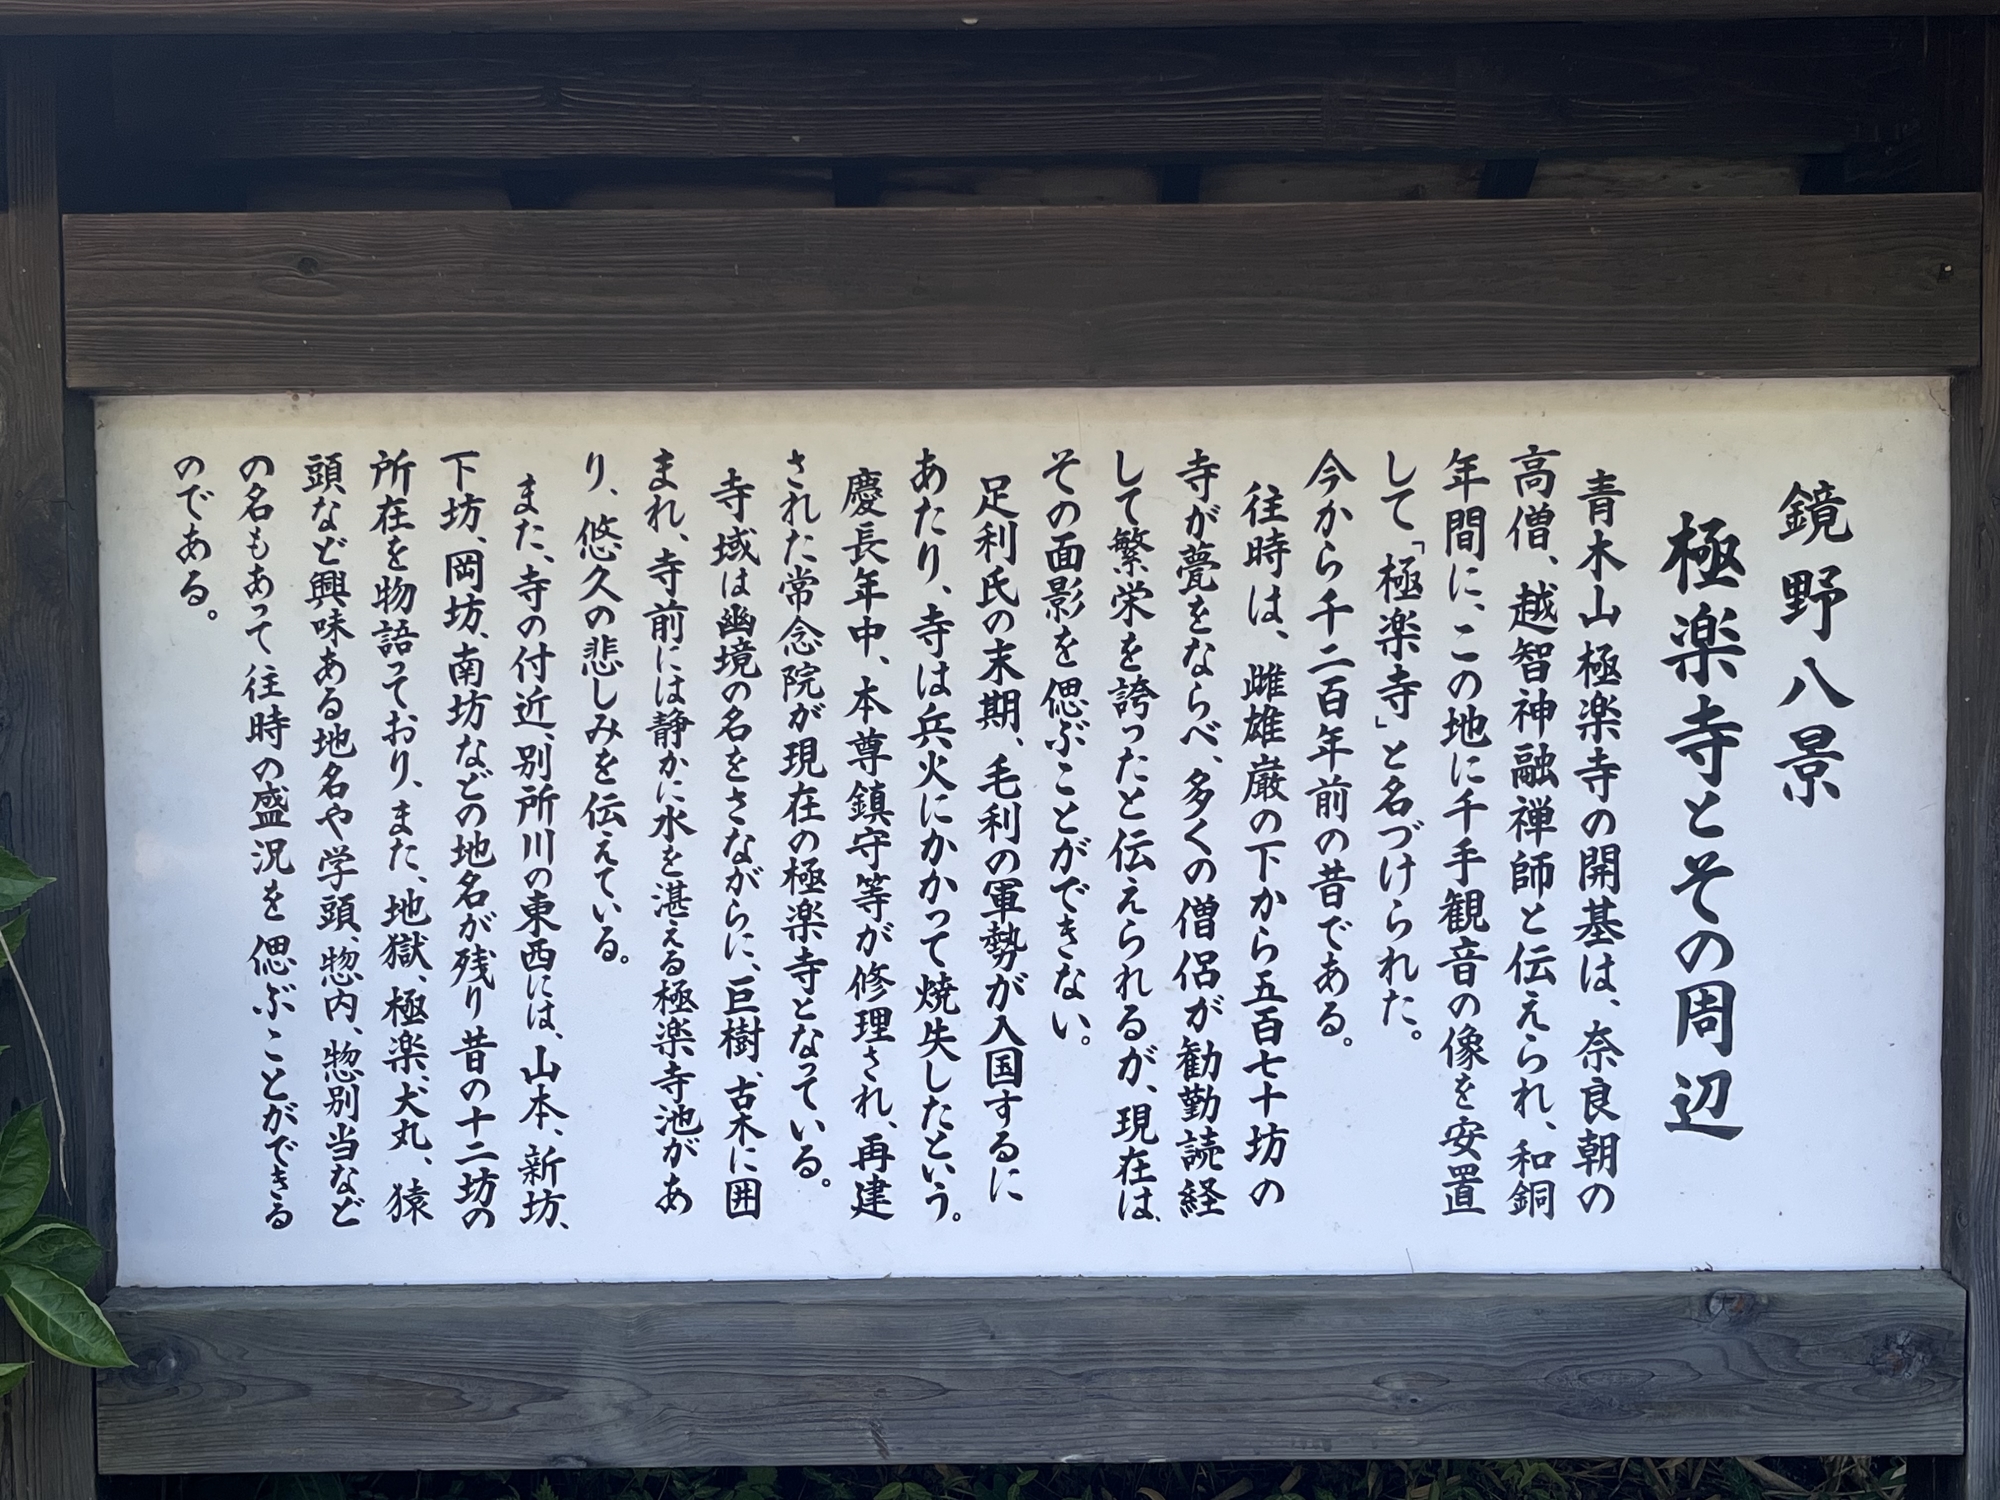 鏡野八景
極楽寺とその周辺
青木山極楽寺の開基は、奈良朝の
高僧、越智神融禅師と伝えられ、和銅
年間に、この地に千手観音の像を安置
して、「極楽寺」と名づけられた。
今から千二百年前の昔である。
往時は、雌雄巌の下から五百七十坊の
寺が甍をならべ、多くの僧侶が勧勤読経
して繁栄を誇ったと伝えられるが、現在は、
その面影を偲ぶことができない。
足利氏の末期、毛利の軍勢が入国するに
あたり、寺は兵火にかかって焼失したという。
慶長年中、本尊鎮守等が修理され、再建
された常念院が現在の極楽寺となっている。
寺域は幽境の名をさながらに、巨樹、古木に囲
まれ、寺前には静かに水を湛える極楽寺池があ
り、悠久の悲しみを伝えている。
また、寺の付近、別所川の東西には、山本、新坊、
下坊、岡坊、南坊などの地名が残り昔の十二坊の
所在を物語っており、また、地獄、極楽、犬丸、猿
頭など興味ある地名や学頭、惣内、惣別当など
の名もあって往時の盛況を偲ぶことができる
のである。